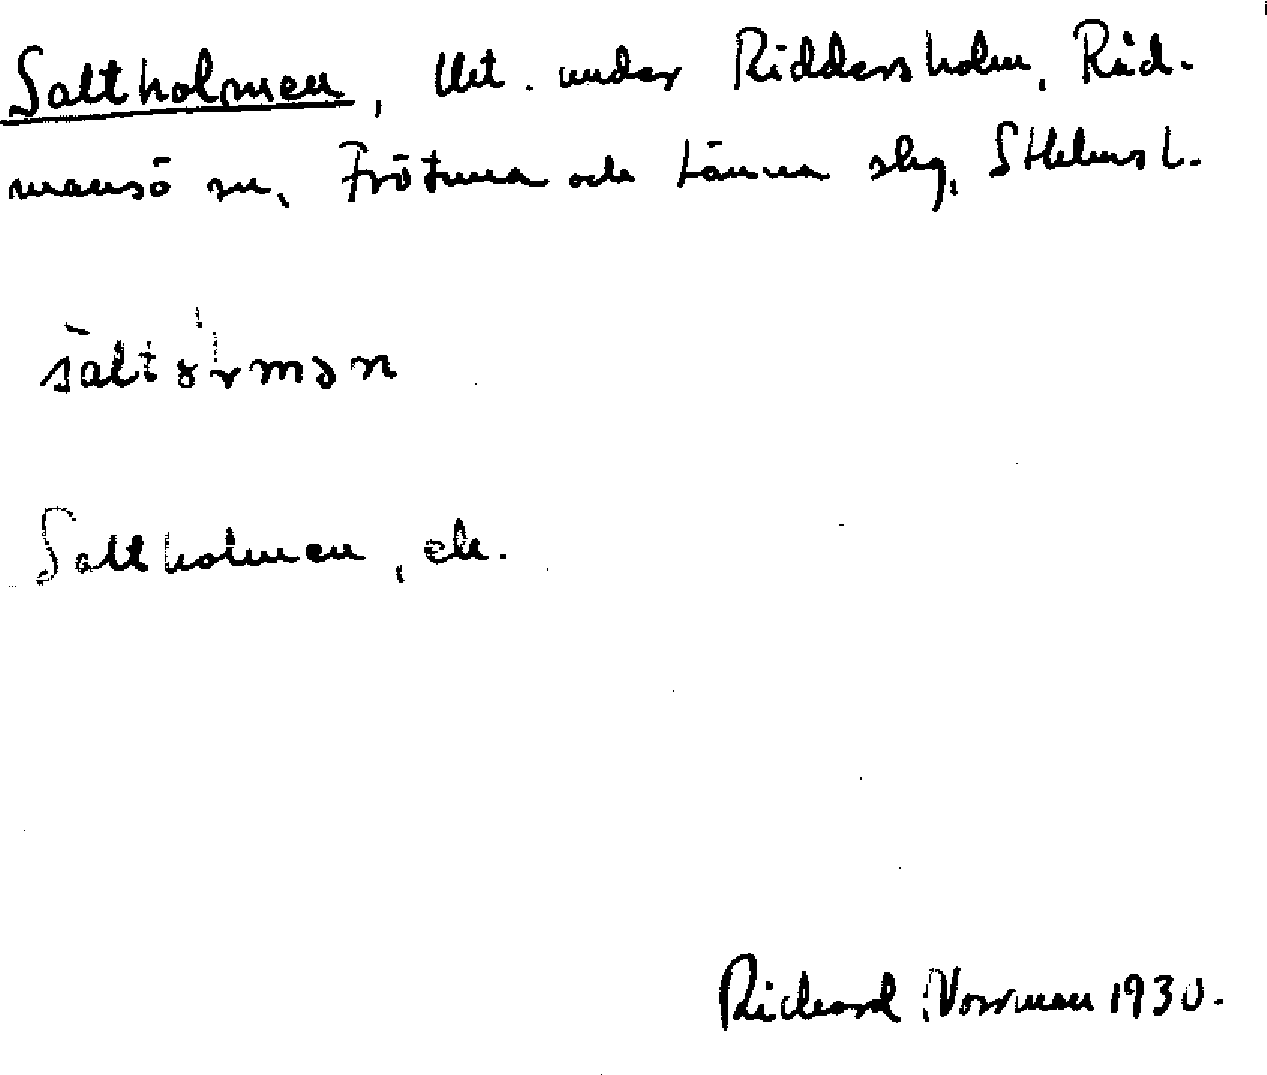 Saltholmen, lht. under Riddersholm, Råd-
mansö sn, Frötuna och Länna slg, Sthlms l.
Saltholmen, ek.
Richard Norrman 1930.